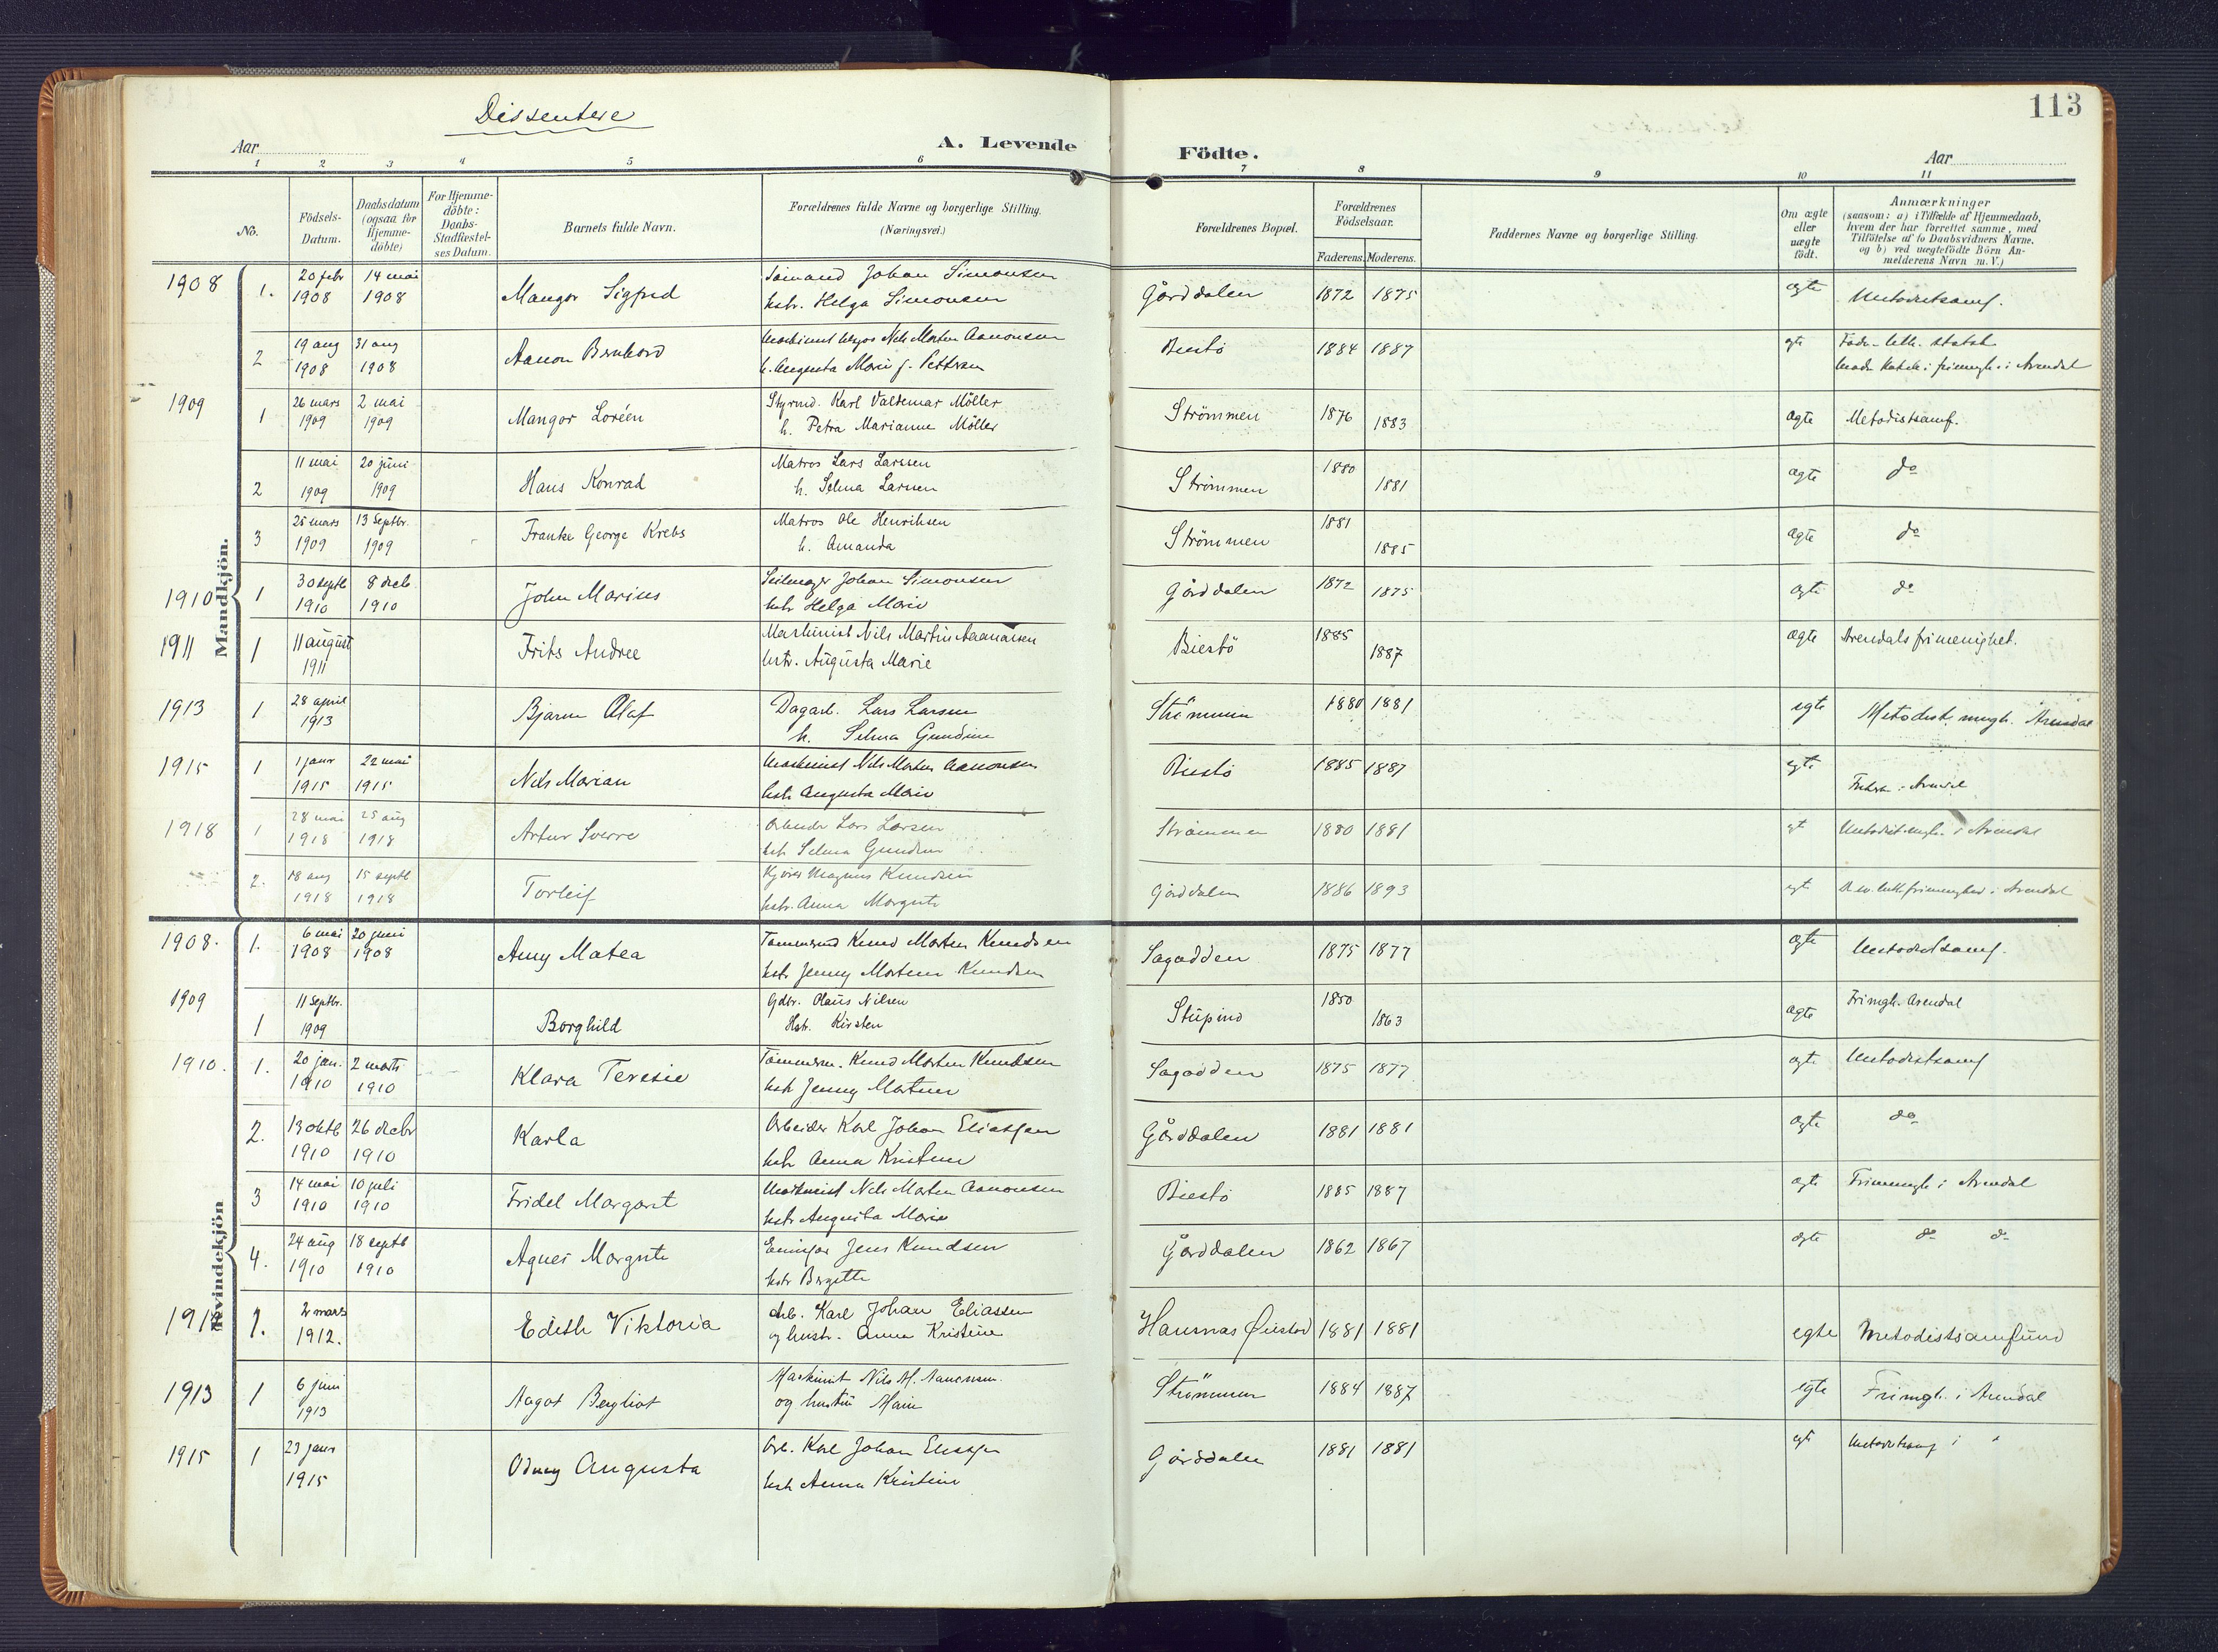 113
Dissentere
Aar
A. Levende Födte.
Aar
1 2 3 4 5 6 7 8 9 10 11
No.
Födsels-
Datum.
Daabsdatum
(ogsaa for
Hjemme-
döbte)
For Hjemme-
döbte:
Daabs-
Stadfæstel-
ses Datum.
Barnets fulde Navn.
Forældrenes fulde Navne og borgerlige Stilling.
(Næringsvei.)
Forældrenes Bopæl.
Forældrenes
Födselsaar.
Faderens. Moderens.
Faddernes Navne og borgerlige Stilling.
Om ægte
eller
uægte
födt.
Anmærkninger
(saasom: a) i Tilfælde af Hjemmedaab,
hvem der har forrettet samme, med
Tilföielse af to Daabsvidners Navne.
og b) ved uægtefödte Börn An-
melderens Navn m. V.)
Mandkjön.
1908 1. 20 febr 14 mai Sömand Johan Simonsen
1908 1908 Mangor Sigfred hstr. Helga Simonsen Gårddalen 1872 1875 ægte Metodistsamf.
2 19 aug 31 aug Maskinist Nils Morten Aanonsen
1908 1908 Aanon Bernhard h. Augusta Marie f. Biestö 1884 1887 gte i frimngh. i Arendal
1909 1 26 mars 2 mai Styrmd. Karl Valdemar Möller
1909 1909 Mangor Loréen h. Petra Marianne Möller Strömmen 1876 1883 ægte Metodistsamf.
2 11 mai 20 juni Matros Lars Larssen
1909 1909 Hans Konrad h. Selma Larsen Strömmen 1880 1881 ægte do
3 25 mars 13 Septbr. Matros Ole Henriksen
1909 1909 Franke George Krebs h. Amanda Strömmen 1881 1885 ægte do
1910 1 30 septb 8 decb Seilmager Johan Simonsen
1910 1910 John Marius hstr Helga Marie Gårddalen 1872 1875 ægte do
1911 1 11 august Maskinist Nils Martin Aanonsen
1911 Frits Andree hstr. Augusta Marie Biestö 1885 1887 ægte Arendals frimenighet.
1913 1 28 april Dagarb. Lars Larsen
1913 Bjarne Olaf h. Selma Gundine Strömmen 1880 1881 egte Metodist. mngh. Arendal
1915 1 1 janr 22 mai Maskinist Nils Morten Aanonsen
1915 1915 Nils Marian hstr Augusta Marie Biestö 1885 1887 egte i Arendal
1918 1 28 mai 25 aug Arbeider Lars Larsen
1918 1918 Artur Sverre hstr Selma Gundine Strömmen 1880 1881 egt Metodistmngh. i Arendal
2. 18 aug 15 septb Magnus Knudsen
1918 1918 Torleif hstr. Anna Margrete Gårddalen 1886 1893 egt D. ev. luth. frimenighed i Arendal
Kvindekjön
1908. 1. 6 mai 20 juni Tömmermd Knud Morten Knudsen
1908 1908 Amy Matea hstr Jenny Martine Knudsen Sagodden 1875 1877 ægte Metodistsamf.
1909 1 11 Septbr. Gdbr. Olaus Nilsen
1909 Borghild Hstr. Kirsten Stupino 1850 1863 ægte Frimgh. Arendal
1910. 1. 20 jan. 2 marts Tömmerm. Knud Morten Knudsen
1910 1910 Klara Teresie hstr Jenny Martine Sagodden 1875 1877 ægte Metodistsamf
2. 13 oktb 26 decbr Arbeider Karl Johan Eliassen
1910 1910 Karla hstr Anna Kristine Gårddalen 1881 1881 ægte do
3 14 mai 10 juli Maskinist Nils Morten Aanonsen
1910 1910 Fridel Margaret hstr Augusta Marie Biestö 1885 1887 ægte Frimengh i Arendal
4. 24 aug 18 septb Jens Knudsen
1910 1910 Agnes Margrete hstr Bergette Gårddalen 1862 1867 ægte do do
1912 1. 2 mars Arb. Karl Johan Eliassen
1912. Edith Viktoria og hustr. Anna Kristine 1881 1881 egte Metodistsamfund
1913 1 6 juni Maskinist Nils M. Aanonsen.
1913 Aagot Bergliot og hustru Marie Strömmen 1884 1887 egte Frimgh. i Arendal
1915 1 23 janr Arb. Karl Johan Eliassen
1915 Odny Augusta hstr Anna Kristine Gårddalen 1881 1881 egt Metodistsamf i "